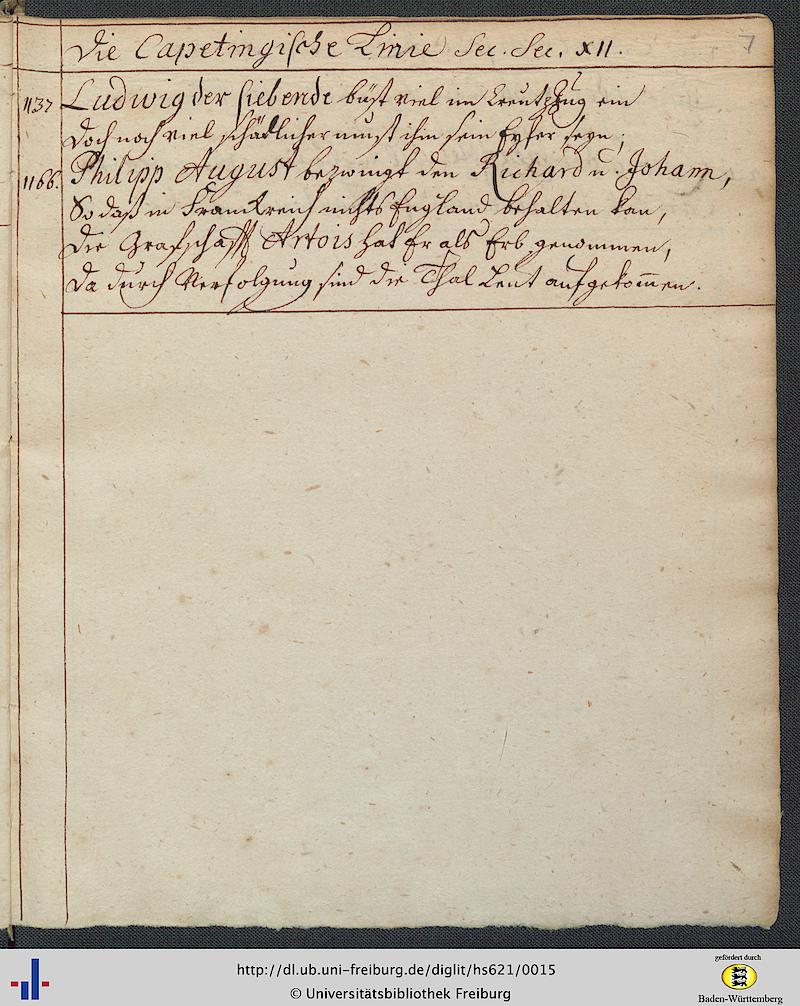 Die Capetingische Linie Sec. Sec. XII.
7
1137 Ludwig der siebende büst viel im Creutzzug ein
Doch noch viel schädlicher must ihm sein Eyfer seyn;
1166. Philipp August bezwingt den Richard u. Johann,
So daß in Franckreich nichts England behalten kan,
Die Grafschafft Artois hat Er als Erb genommen,
Da durch Verfolgung sind die Thal Leut aufgekommen.
http://dl.ub.uni-freiburg.de/diglit/hs621/0015
© Universitätsbibliothek Freiburg
gefördert durch
Baden-Württemberg